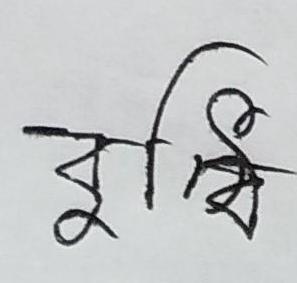 বুদ্ধি